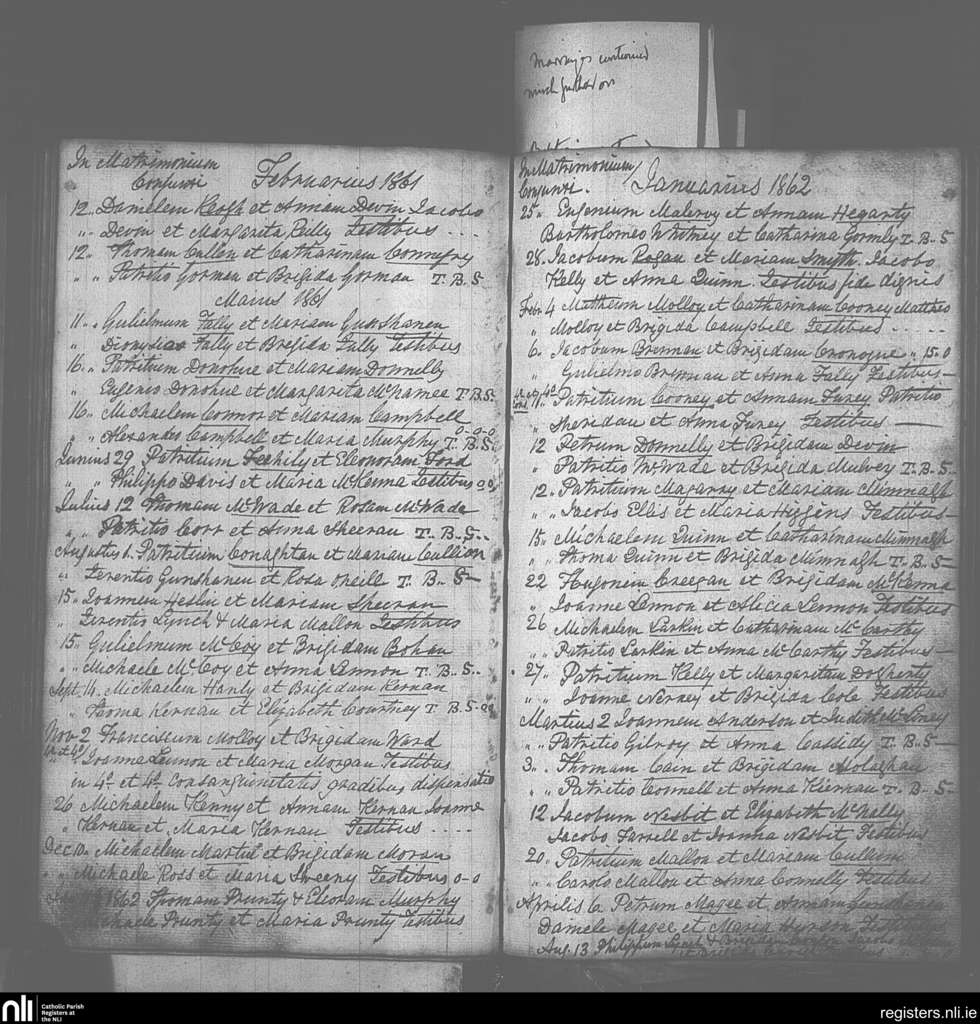 Marriages continued
much further on
In Matrimonium
Conjuncti Februarius 1861
12 " Danielem Keogh et Annam Devin Jacobo
" Devin et Margarita Reilly Testibus
12 " Thomam Cullen et Catharinam
" " Patritio Gorman et Brigida Gorman T. B. S
Maius 1861
11 " Gulielmum Fally et Mariam Gunshanen
" Fally et Bregida Fally Testibus
16 " Patritium Donohue et Mariam Donnelly
" Eugenio Donohue et Margarita McNamee T B S
16 " Michaelem Connor et Mariam Campbell
" " Alexander Campbell et Maria Murphy T. B. S. 0-0-0
Junius 29 Patritium Feehily et Eleonoram Ford
" " Philippo Davis et Maria McKenna Testibus 0 0
Julius 12 Thomam McWade et Rosam McWade
" " Patritio Corr et Anna Sheeran T. B. S.
Augustus 1. Patritium Conaghtan et Mariam Cullion
" Terentio Gunshanen et Rosa Oneile T. B. S
15 " Joannem Heslin et Mariam Sheeran
" Terentio Lynch & Maria Mallon Testibus
15 " Gulielmum McCoy et Brigidam Bohan
" " Michaele McCoy et Anna Lennon T. B. S.
Sept. 14. Michaelem Hanly et Brigidam Kernan
" Thoma Kernan et Elizabeth Courtney T B. S
Nov 2 Franciscum Molloy et Brigidam Ward
" Joanne Lennon et Maria Morgan Testibus
in 4o et 4o Consanguinitatis gradibus dispensatio
26 Michaelem Kenny et Annam Kernan Joanne
" Kernan et Maria Kernan Testibus
Dec 10. Michaelem Martin et Brigidam Moran
" " Michaele Ross et Maria Sweeny Testibus 0-0
1862 Thomam Prunty & Eleoram Murphy
Michaele Prunty et Maria Prunty Testibus
In Matrimonium
Conjuncti. Januarius 1862
25 " Eugenium et Annam Hegarty
Bartholomeo Whitney et Catharina Gormly T. B. S
28. Jacobum Rogan et Mariam Smyth. Jacobo
Kelly et Anna Quinn. Testibus fide dignis
Feb. 4 Mattheum Molloy et Catharinam Cooney Mattheo
" Molloy et Brigida Campbell Testibus
6. Jacobum Brennan et Brigidam Cronogue " 15-0
" Gulielmo Brennan et Anna Fally Testibus
Patritium Cooney et Annam Furey Patritio
" Sheridan et Anna Furey Testibus
12 Petrum Donnelly et Brigidam Devin
" Patritio McWade et Brigida Mulvey T. B. S
12 " Patritium Magarry et Mariam Mimnagh
" Jacobo Ellis et Maria Higgins Testibus
15 " Michaelem Quinn et Catharinam Mimnagh
" Thoma Quinn et Brigida Mimnagh T. B. S
22 Hugonem Creegan et Brigidam McKenna
" Joanne Lennon et Alicia Lennon Testibus
26 Michaelem Larkin et Catharinam McCarthy
" " Patritio Larkin et Anna McCarthy Testibus
27 " Patritium Kelly et Margaritam Dogherty
" Joanne Nerney et Brigida Cole Testibus
Martius 2 Joannem Anderson et Judith
" " Patritio Gilroy et Anna Cassidy T. B. S
3 " Thomam Cain et Brigidam Holaghan
" " Patritio Connell et Anna Kiernan T. B. S
12 Jacobum Nesbit et Elizabeth McNally
Jacobo Farrell et Joanna Nesbit Testibus
20 " Patritium Mallon et Mariam Cullion
" " Carolo Mallon et Anna Connelly Testibus
Aprilis 6 Petrum Magee et Annam Gunshanen
Daniele Magee et Maria
Aug. 13 Philippum Lynch & Brigidam
nli Catholic Parish
Registers at
the NLI
registers.nli.ie